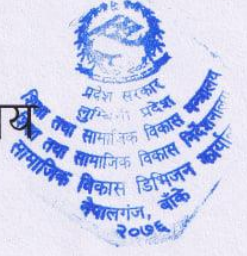 प्रदेश सरकार
लुम्बिनी प्रदेश
तथा सामाजिक विकास मन्त्रालय
तथा सामाजिक विकास निर्देशनालय
सामाजिक विकास डिभिजन कार्या
नेपालगंज, बाँके
२०७६
य